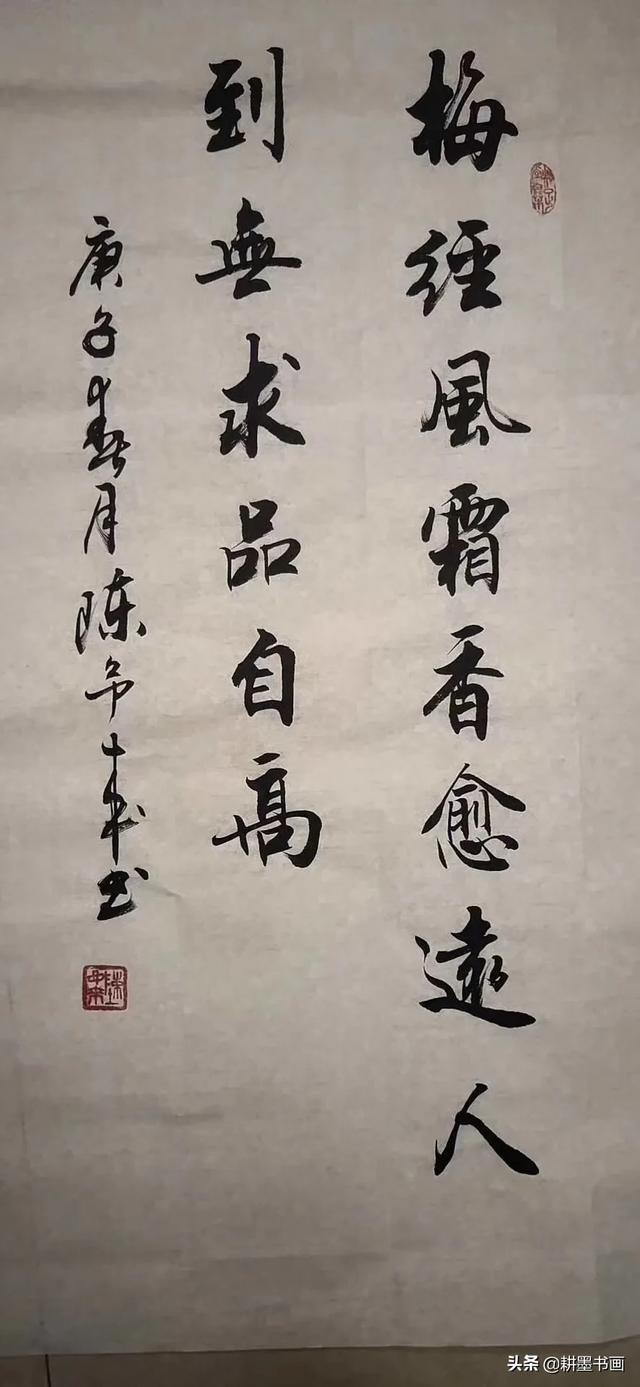 梅經風霜香愈遠人
到無求品自高
庚子春月陈
书
头条 @耕墨书画